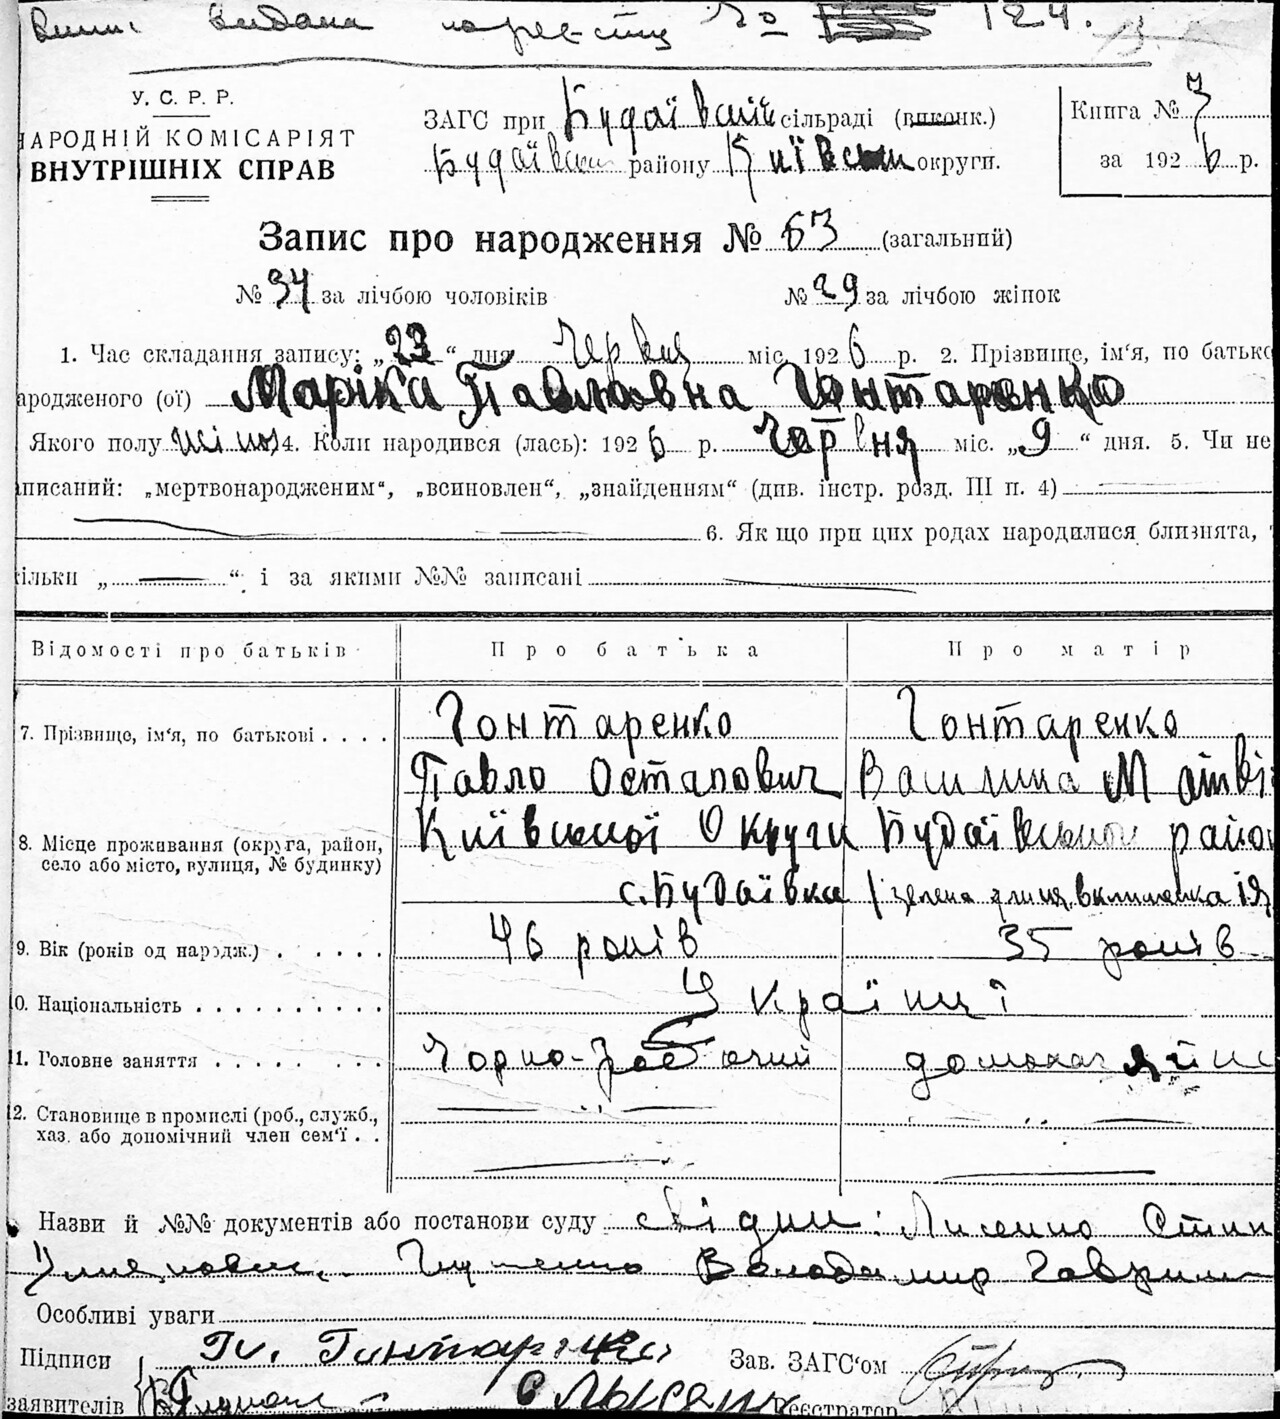 видана № 124.
У. С. Р. Р.
НАРОДНІЙ КОМІСАРІЯТ
ВНУТРІШНІХ СПРАВ
ЗАГС при Будаївській сільраді (виконк.)
Будаївськ району Київськ округи.
Книга № 7
за 1926 р.
Запис про народження № 63 (загальний)
№ 34 за лічбою чоловіків № 29 за лічбою жінок
1. Час складання запису: „23“ дня Червня міс. 1926 р. 2. Прізвище, ім‘я, по батько
ародженого (ої) Маріка Павловна Гонтаренко
Якого полу жіноч 4. Коли народився (лась): 1926 р. Червня міс. „9“ дня. 5. Чи не
писаний: „мертвонародженим“, „всиновлен“, „знайденням“ (див. інстр. розд. III п. 4)
6. Як що при цих родах народилися близнята,
ільки „—“ і за якими №№ записані
Відомості про батьків Про батька Про матір
7. Прізвище, ім‘я, по батькові . . . . Гонтаренко Гонтаренко
Павло Остапович Василина Матві
8. Місце проживання (округа, район, село або місто, вулиця, № будинку) Київської Округи Будаївської райо
с. Будаївка зелена улиця
9. Вік (років од народж.) . . . . . 46 років 35 років
10. Національність . . . . . . . . . . Українці
11. Головне заняття . . . . . . . . Чорно-робочий домохазяйк
12. Становище в промислі (роб., служб., хаз. або допомічний член сем‘ї . .
Назви й №№ документів або постанови суду свідки: Лисенко
Володимир Гаврил
Особливі уваги
Підписи Гонтаренко Зав. ЗАГС‘ом
заявителів Реєстратор